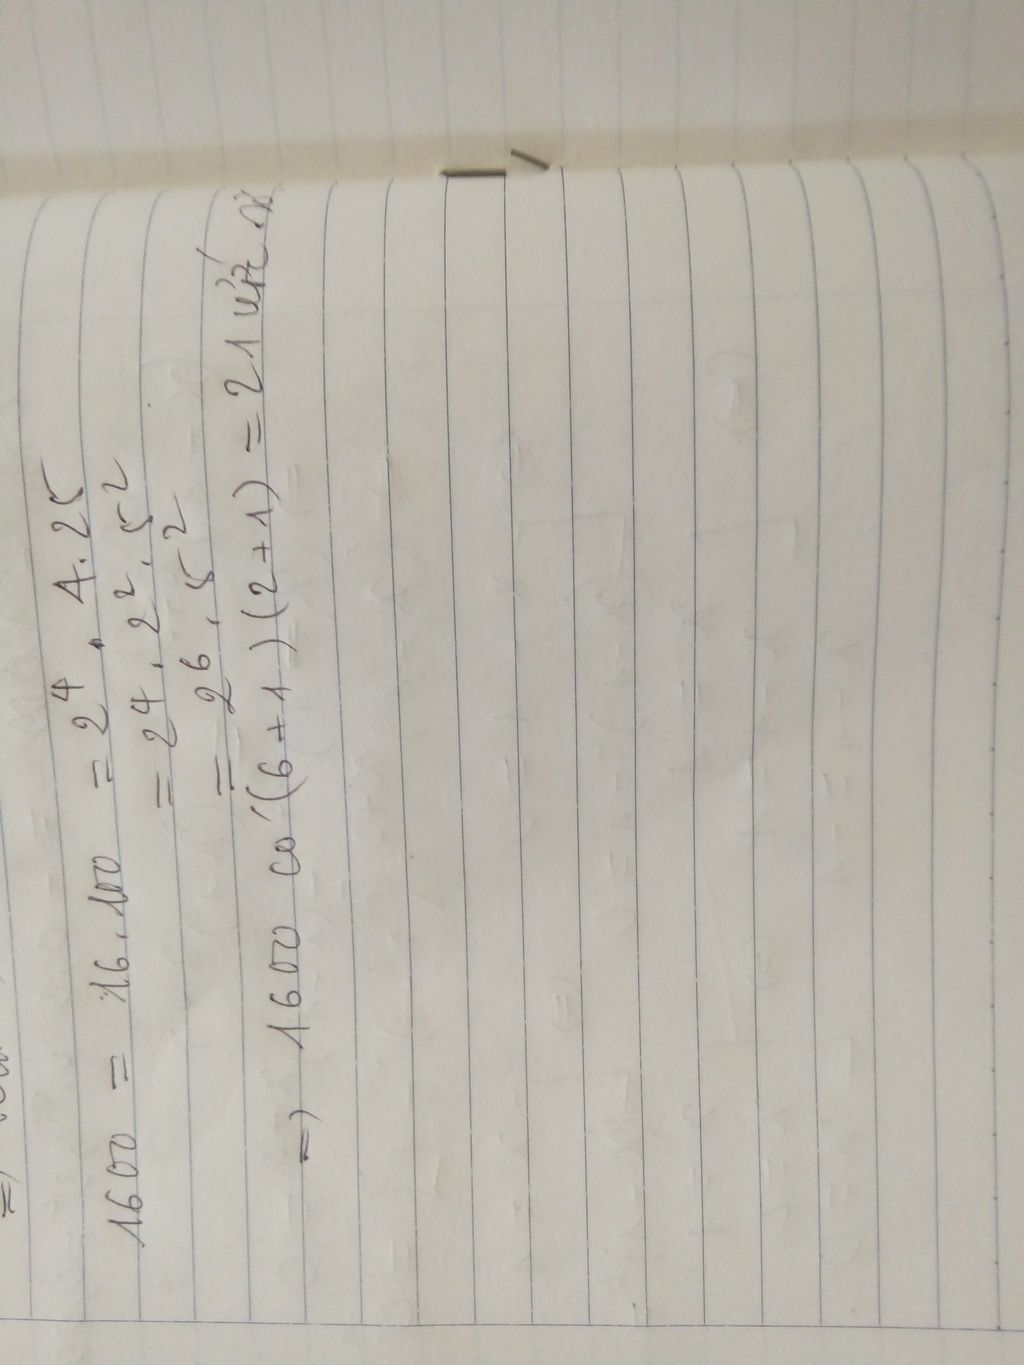 1600 = 16.100 = 2⁴.4.25
= 2⁴.2².5²
= 2⁶.5²
=> 1600 có (6+1)(2+1) = 21 ước số